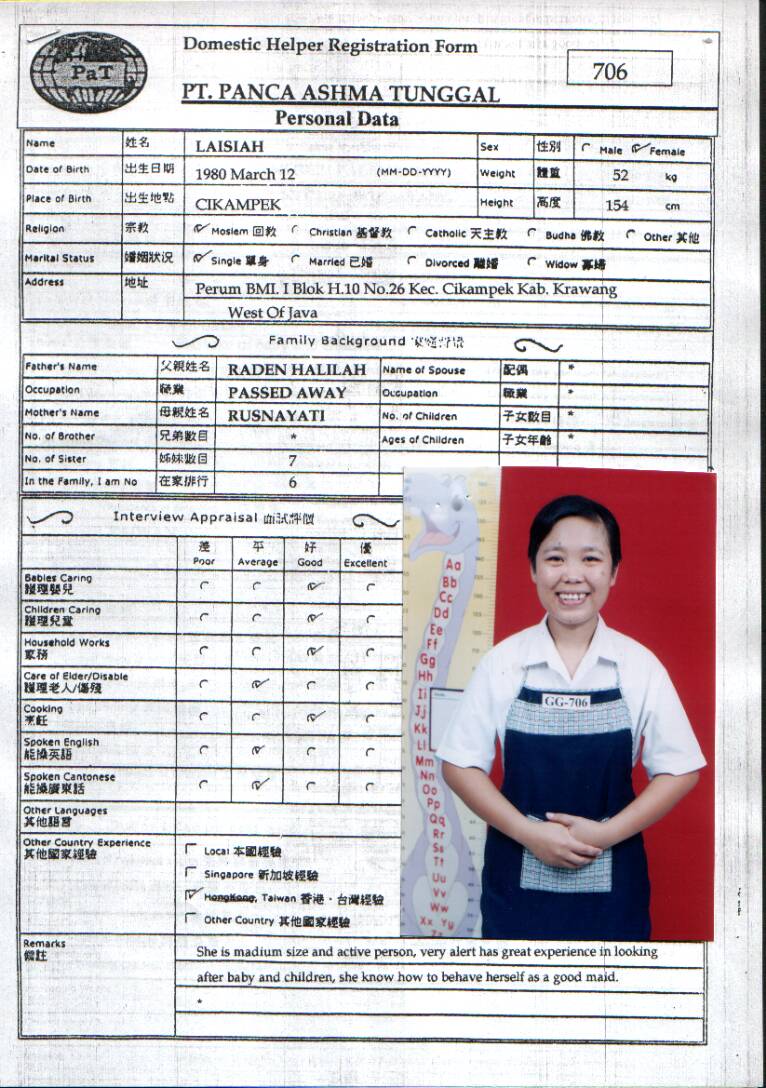 Domestic Helper Registration Form
PaT
706
PT. PANCA ASHMA TUNGGAL
Personal Data
Name 姓名 LAISIAH Sex 性別 Male Female
Date of Birth 出生日期 1980 March 12 (MM-DD-YYYY) Weight 體重 52 kg
Place of Birth 出生地點 CIKAMPEK Height 高度 154 cm
Religion 宗教 Moslem 回教 Christian 基督教 Catholic 天主教 Budha 佛教 Other 其他
Marital Status 婚姻狀況 Single 單身 Married 已婚 Divorced 離婚 Widow 寡婦
Address 地址 Perum BMI. I Blok H.10 No.26 Kec. Cikampek Kab. Krawang
West Of Java
Family Background
Father's Name 父親姓名 RADEN HALILAH Name of Spouse 配偶 *
Occupation 職業 PASSED AWAY Occupation 職業 *
Mother's Name 母親姓名 RUSNAYATI No. of Children 子女數目 *
No. of Brother 兄弟數目 * Ages of Children 子女年齡 *
No. of Sister 姊妹數目 7
In the Family, I am No 在家排行 6
Interview Appraisal 面試評價
差 平 好 優
Poor Average Good Excellent
Babies Caring
護理嬰兒
Children Caring
護理兒童
Household Works
家務
Care of Elder/Disable
護理老人/傷殘
Cooking
烹飪
Spoken English
能操英語
Spoken Cantonese
能操廣東話
Other Languages
其他語言
Other Country Experience
其他國家經驗
Local 本國經驗
Singapore 新加坡經驗
HongKong, Taiwan 香港．台灣經驗
Other Country 其他國家經驗
Aa
Bb
Cc
Dd
Ee
Ff
Gg
Hh
Ii
Jj
Kk
Ll
Mm
Nn
Oo
Pp
Qq
Rr
Ss
Tt
Uu
Vv
Ww
Xx Yy
Zz
GG-706
Remarks
備註
She is madium size and active person, very alert has great experience in looking
after baby and children, she know how to behave herself as a good maid.
*